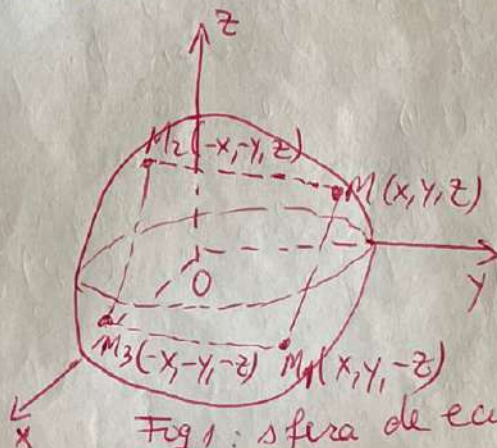 Z
M2(-x,-y,z)
M(x,y,z)
O
Y
M3(-x,-y,-z)
M1(x,y,-z)
X
Fog 1: sfera de ecu